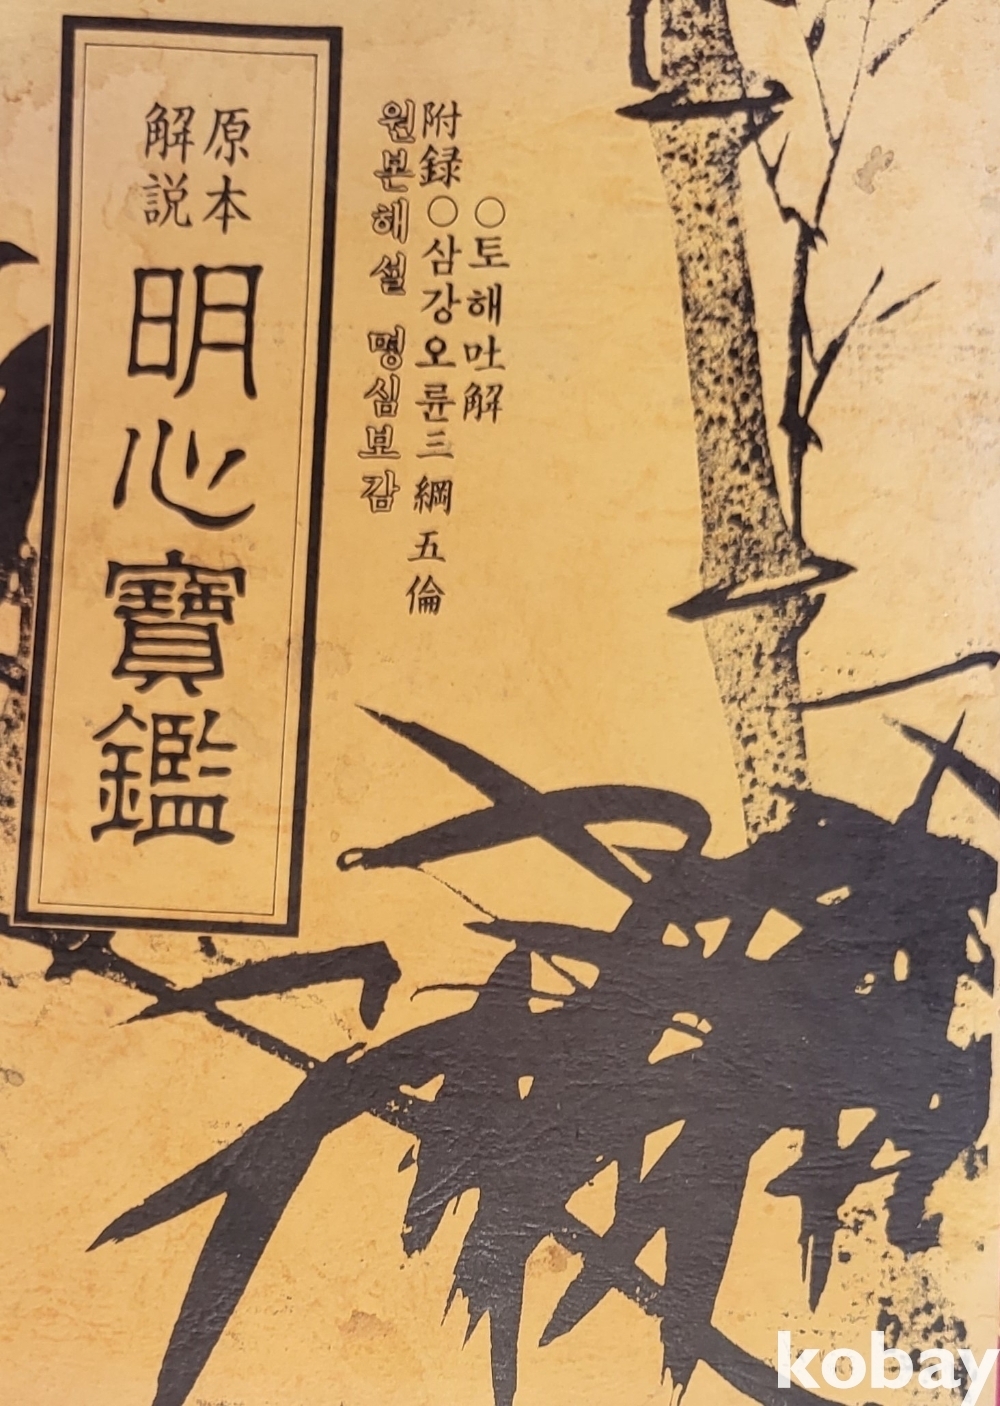 ○토해吐解
附録○삼강오륜三綱五倫
원본해설 명심보감
原本
解説
明心寶鑑
kobay